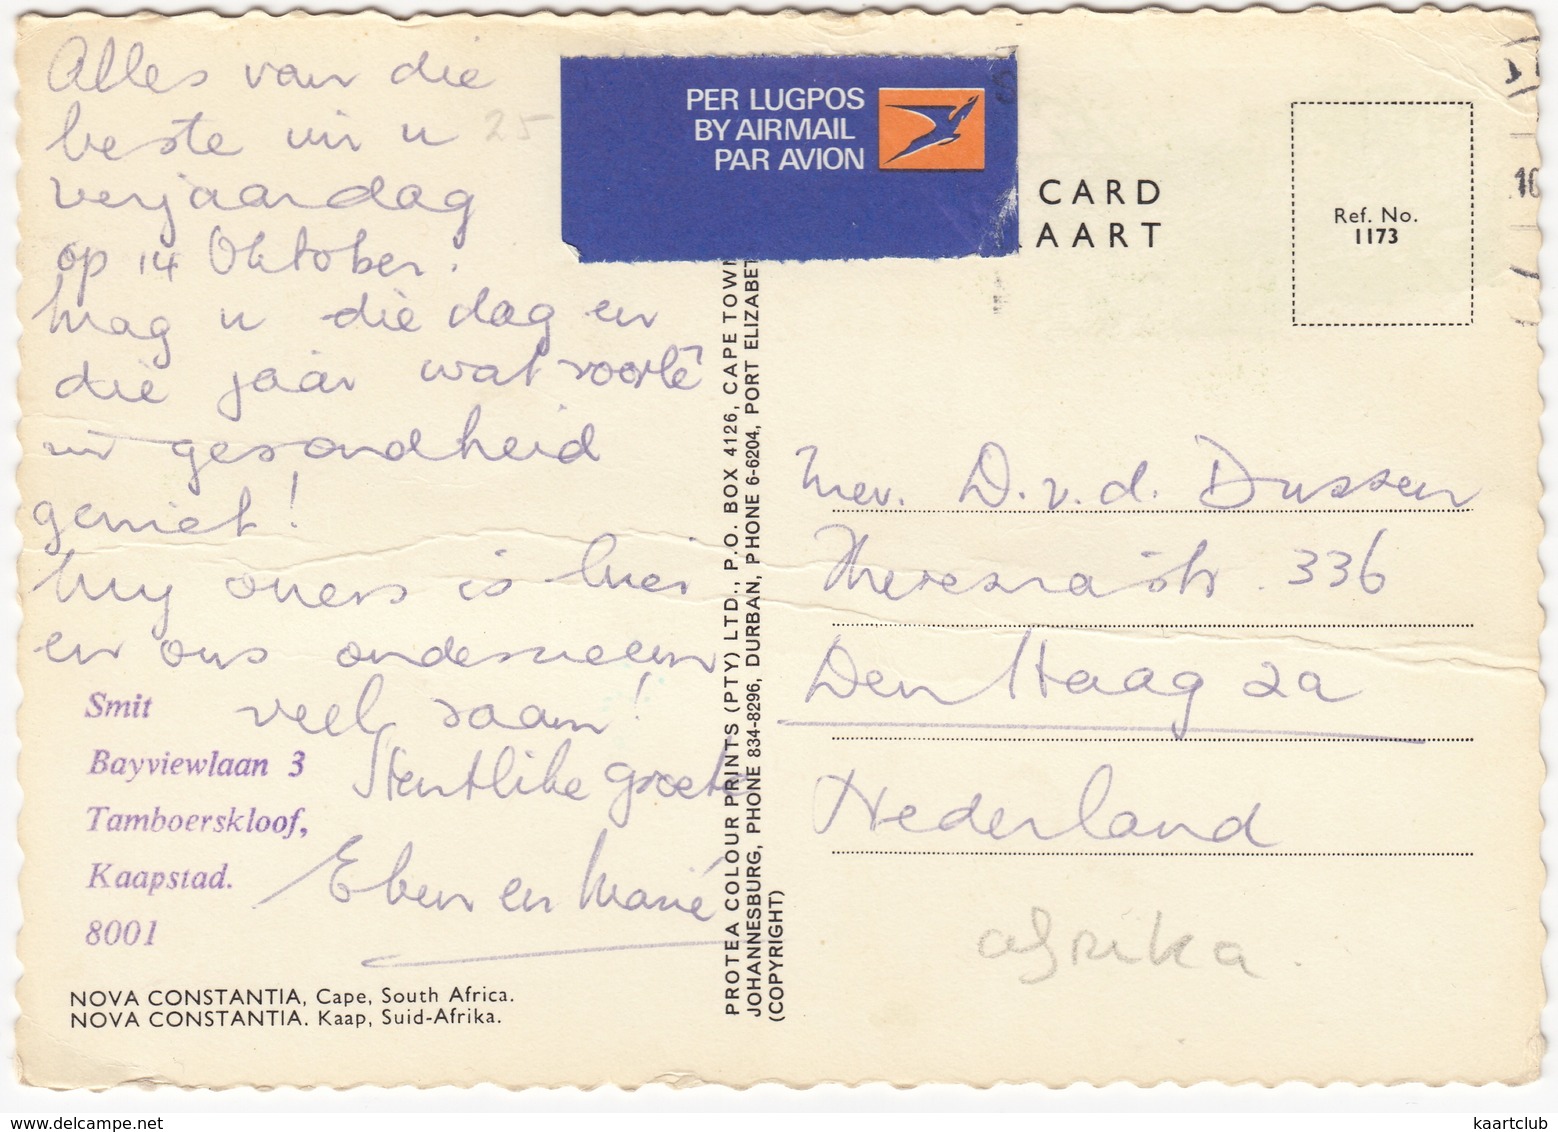 Alles van die
beste vir u 25
verjaardag
op 14 Oktober.
Mag u die dag en
die jaar wat voorlê
in gesondheid
geniet!
My ouers is hier
en ons onderneem
veel saam!
Hartlike groete
Eben en Marié
Smit
Bayviewlaan 3
Tamboerskloof,
Kaapstad.
8001
NOVA CONSTANTIA, Cape, South Africa.
NOVA CONSTANTIA. Kaap, Suid-Afrika.
PER LUGPOS
BY AIRMAIL
PAR AVION
CARD
KAART
Ref. No.
1173
10
PROTEA COLOUR PRINTS (PTY) LTD., P.O. BOX 4126, CAPE TOWN
JOHANNESBURG, PHONE 834-8296, DURBAN, PHONE 6-6204, PORT ELIZABET
(COPYRIGHT)
Mev. D. v. d. Dussen
Theresiastr. 336
Den Haag 2a
Nederland
afrika.
kaartclub
www.delcampe.net